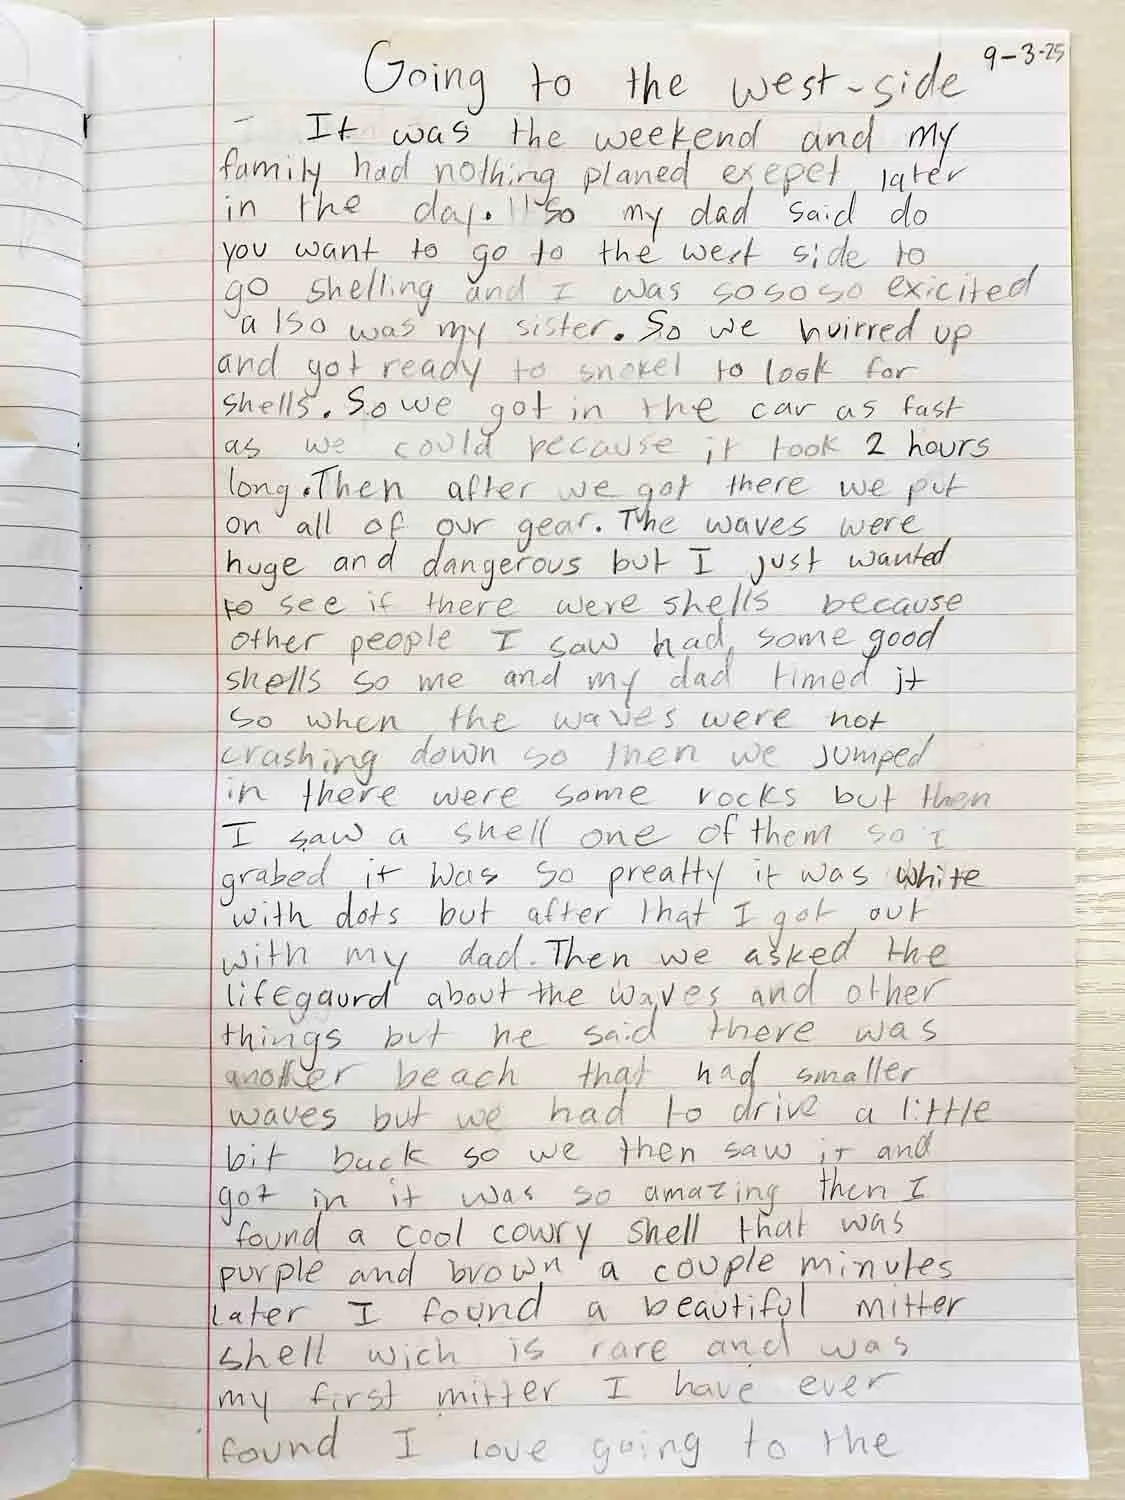 9-3-25
Going to the west-side
It was the weekend and my
family had nothing planed exepet later
in the day. so my dad said do
you want to go to the west side to
go shelling and I was sososo exicited
also was my sister. So we huirred up
and got ready to snokel to look for
shells. So we got in the car as fast
as we could because it took 2 hours
long. Then after we got there we put
on all of our gear. The waves were
huge and dangerous but I just wanted
to see if there were shells because
other people I saw had some good
shells so me and my dad timed it
so when the waves were not
crashing down so then we jumped
in there were some rocks but then
I saw a shell one of them so I
grabed it was so preatty it was white
with dots but after that I got out
with my dad. Then we asked the
lifegaurd about the waves and other
things but he said there was
another beach that had smaller
waves but we had to drive a little
bit back so we then saw it and
got in it was so amazing then I
found a cool cowry shell that was
purple and brown a couple minutes
later I found a beautiful mitter
shell wich is rare and was
my first mitter I have ever
found I love going to the